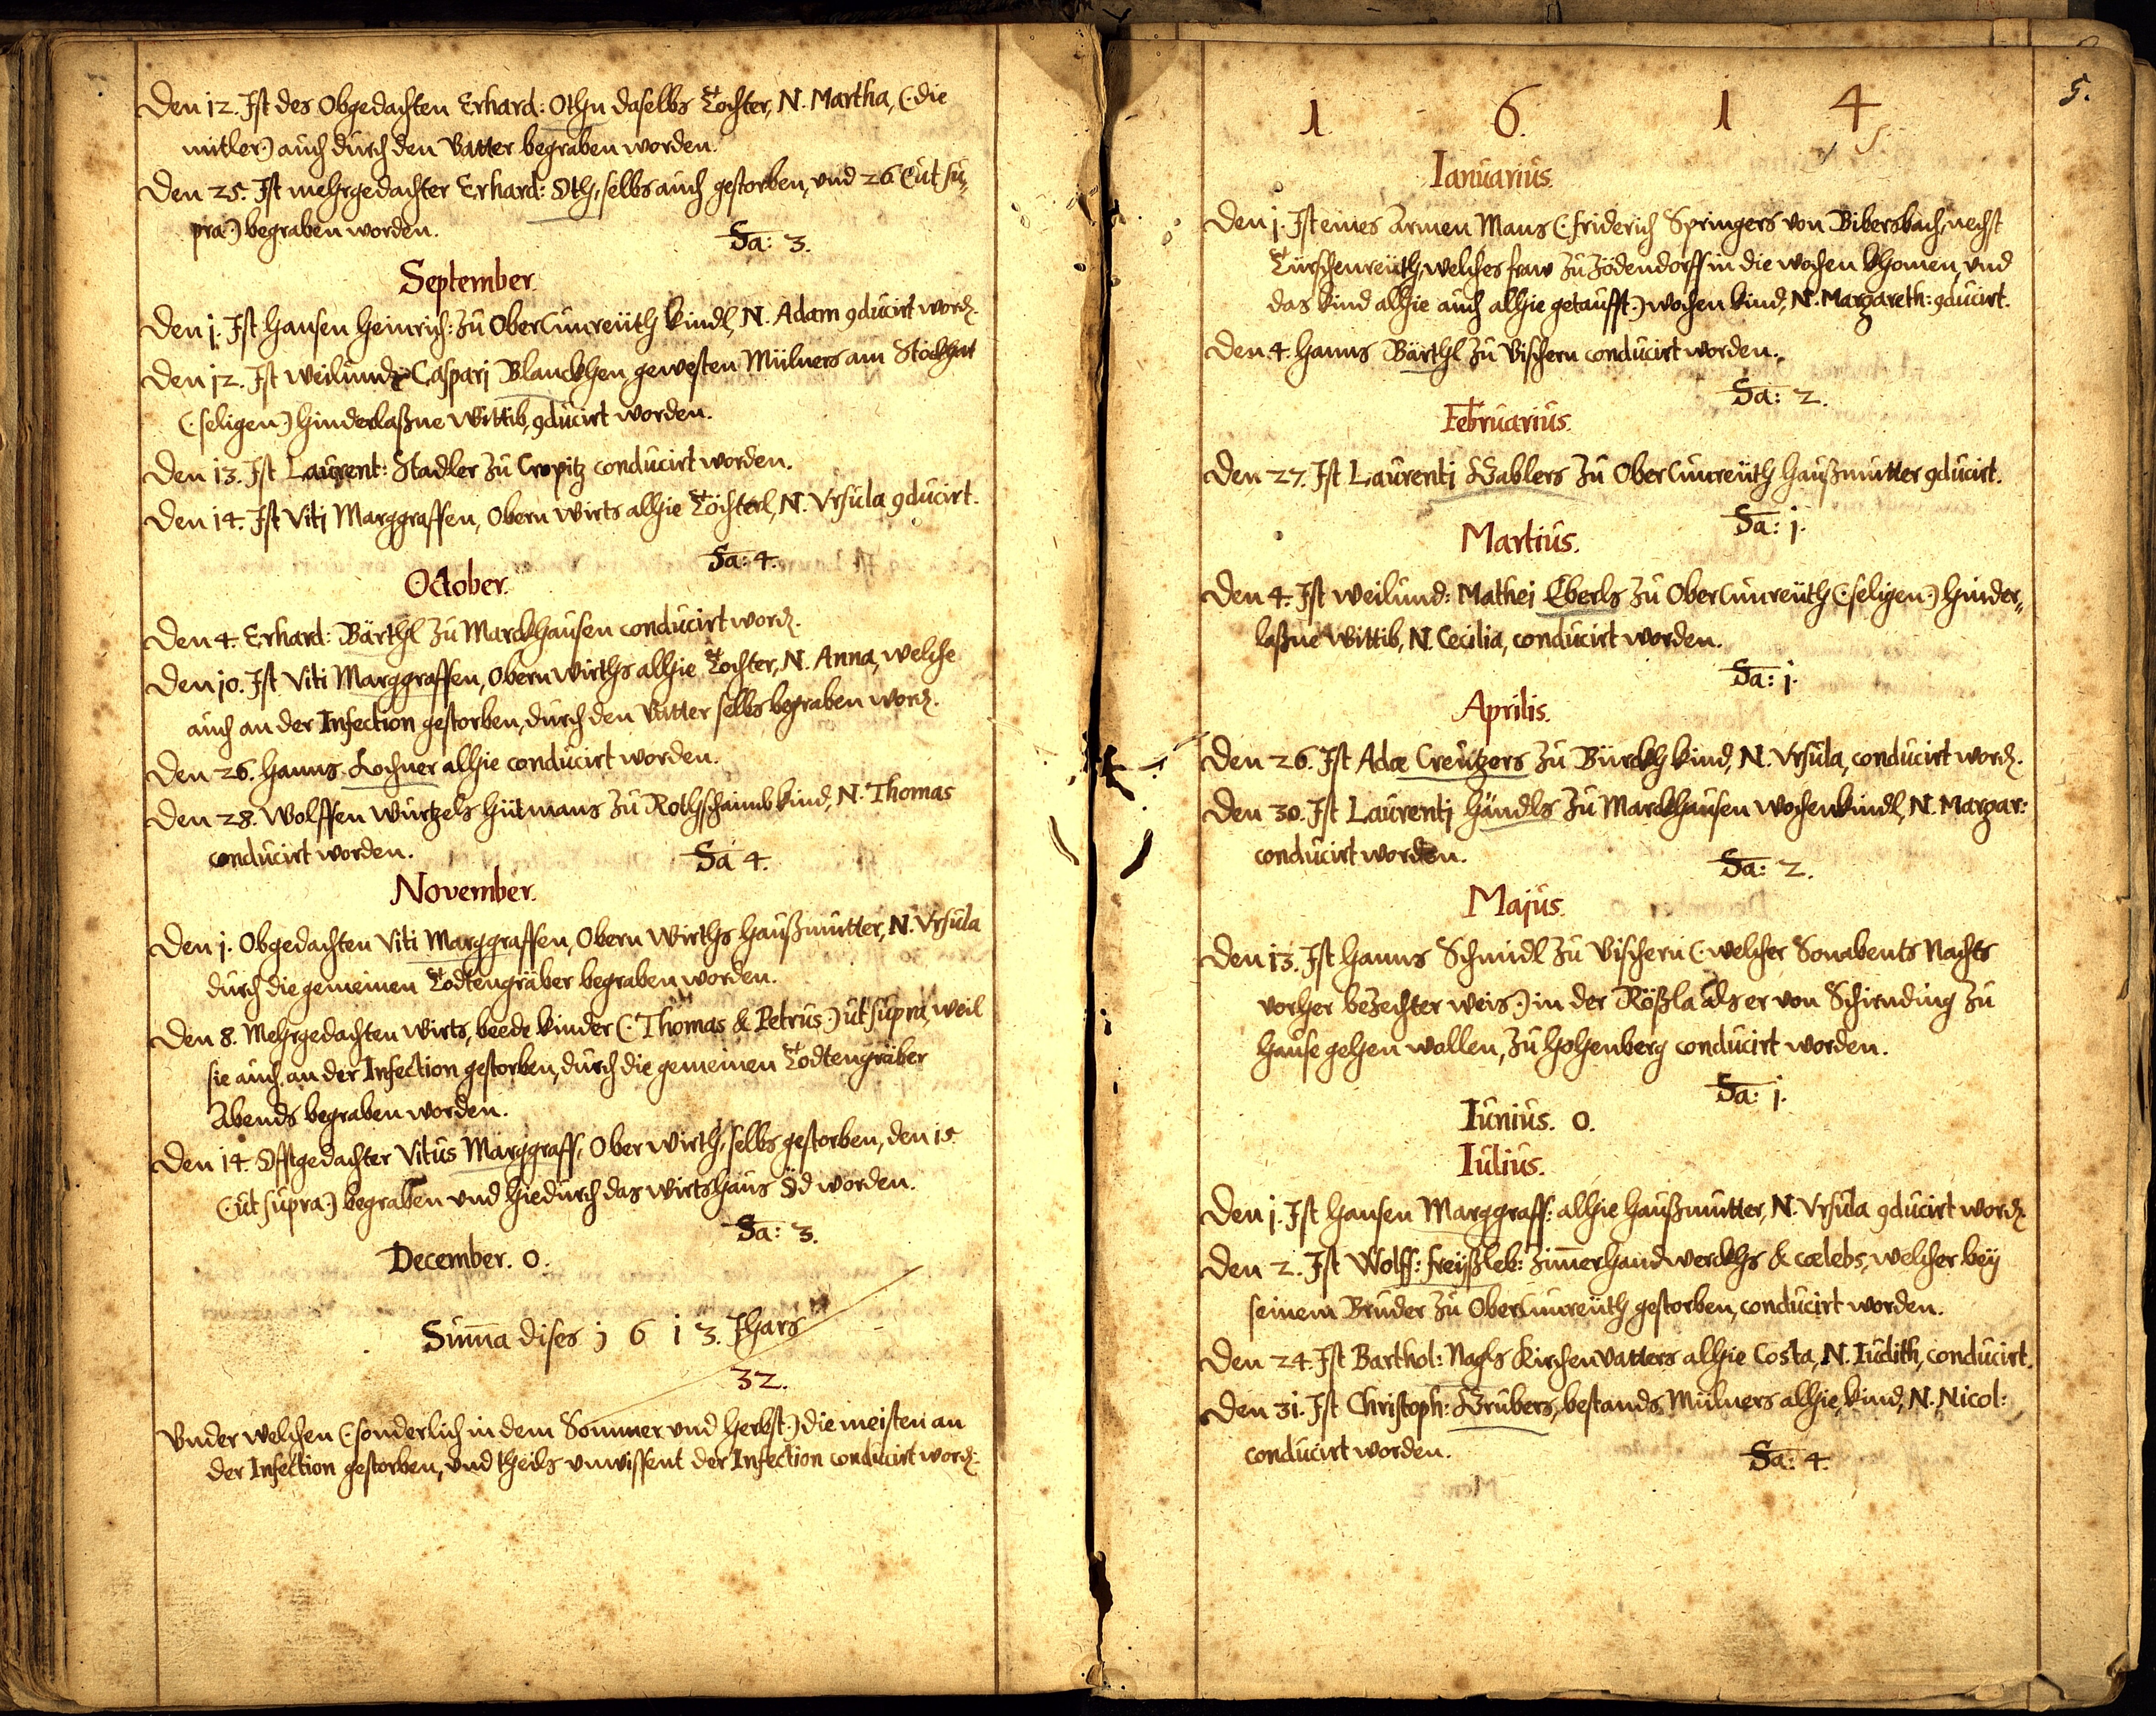 Den 12. Ist des Obgedachten Erhard: Othn daselbs Tochter, N. Martha, (: die
mitler :) auch durch den Vatter begraben worden.
Den 25. Ist mehrgedachter Erhard: Oth, selbs auch gestorben, und 26 (: ut su,,
pra :) begraben worden.
Sa: 3.
September.
Den 1. Ist Hansen Heinrich: zu Ober Cunreüth kindl, N. Adam 9ducirt word.
Den 12. Ist weilund Caspari Blanckhen gewesten Mülners am Stöckhat
(: seligen :) hinderlaßne Wittib, 9ducirt worden.
Den 13. Ist Laurent: Stadler zu Cropitz conducirt worden.
Den 14. Ist Viti Marggraffen, Obern Wirts alhie Töchterl, N. Vrsula 9ducirt.
Sa: 4.
October.
Den 4. Erhard: Bärthl zu Marckhausen conducirt word.
Den 10. Ist Viti Marggraffen, Obern Wirths alhie Tochter, N. Anna, welche
auch an der Infection gestorben, durch den Vatter selbs begraben word.
Den 26. Hanns Lochner alhie conducirt worden.
Den 28. Wolffen Wurtzels Hütmans zu Rothschaimb kind, N. Thomas
conducirt worden.
Sa 4.
November.
Den 1. Obgedachten Viti Marggraffen, Obern Wirths Haußmutter, N. Vrsula
durch die gemeinen Todtengräber begraben worden.
Den 8. Mehrgedachten Wirts, beede kinder (: Thomas & Petrus :) ut supra, weil
sie auch an der Infection gestorben, durch die gemeinen Todtengräber
Abends begraben worden.
Den 14. Offtgedachter Vitus Marggraff, Ober Wirth, selbs gestorben, den 15
(: ut supra :) begraben und hiedurch das Wirtshaus Öd worden.
Sa: 3.
December. 0.
Sum̄a dises 1 6 1 3. Jhars
32.
Vnder welchen (: sonderlich in dem Sommer und Herbst :) die meisten an
der Infection gestorben, und theils unwissent der Infection conducirt word.
5.
1. 6. 1 4
Ianuarius.
Den 1. Ist eines Armen Mans (: Friderich Springers von Bibersbach, nechst
Türschenreüth, welches fraw zu Jödendorff in die wochen khomen, und
das kind alhie auch alhie getaufft :) wochen kind, N. Margareth: 9ducirt.
Den 4. Hanns Bärthl zu Vischern conducirt worden.
Sa: 2.
Februarius.
Den 27. Ist Laurenti Gablers zu Ober Cunreüth Haußmutter 9ducirt.
Sa: 1.
Martius.
Den 4. Ist weilund: Mathei Eberls zu Ober Cunreüth (: seligen :) hinder,,
laßne Wittib, N. Cecilia, conducirt worden.
Sa: 1.
Aprilis.
Den 26. Ist Adæ Creützers zu Bürckh kind, N. Vrsula, conducirt word.
Den 30. Ist Laurenti Händls zu Marckhausen wochenkindl, N. Margar:
conducirt worden.
Sa: 2.
Majus.
Den 13. Ist Hanns Schmidl zu Vischern (: welcher Sonabents Nachts
vorher bezechter weis :) in der Rößla als er von Schirnding zu
Hause gehen wollen, zu Hohenberg conducirt worden.
Sa: 1.
Iunius. 0.
Iulius.
Den 1. Ist Hansen Marggraff: alhie Haußmutter, N. Vrsula 9ducirt word.
Den 2. Ist Wolff: Freyßleb: Zim̄erhandwerckhs & cælebs, welcher bey
seinem Bruder zu Ober Cunreüth gestorben, conducirt worden.
Den 24. Ist Barthol: Nagls Kirchenvatters alhie Costa, N. Iudith, conducirt.
Den 31. Ist Christoph: Grubers, bestands Mülners alhie, kind, N. Nicol:
conducirt worden.
Sa: 4.